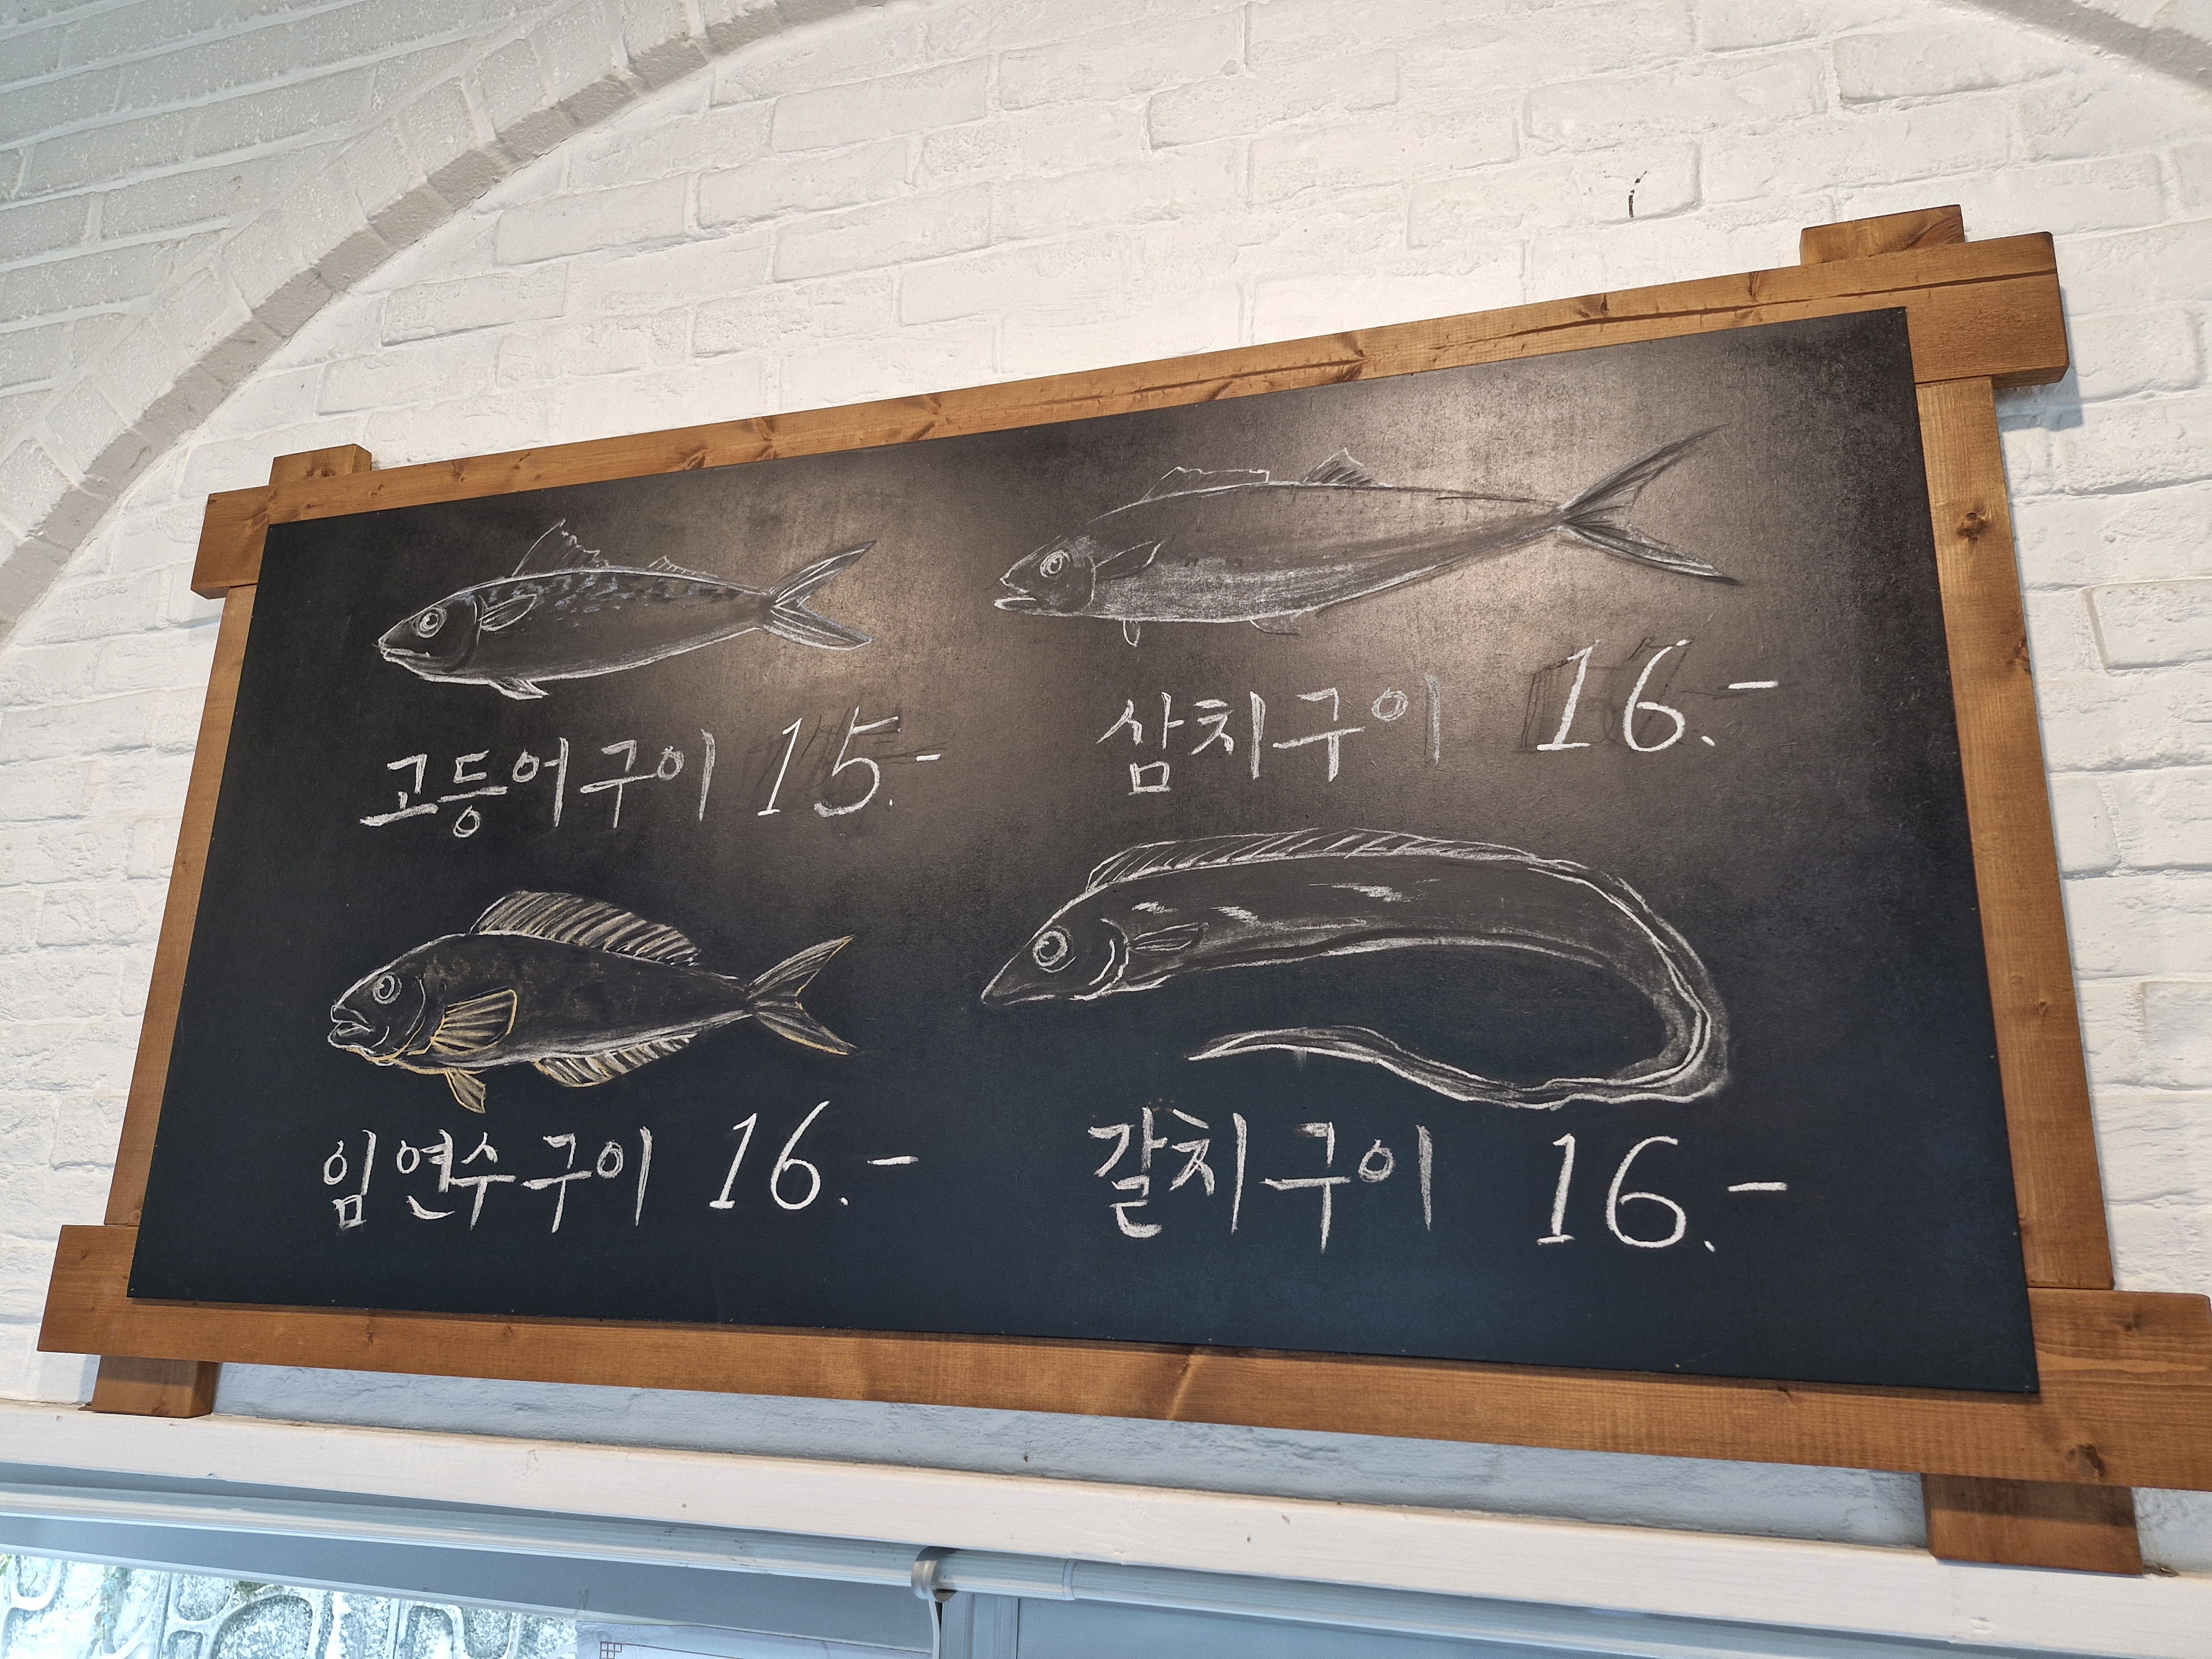 고등어구이 15.-
삼치구이 16.-
임연수구이 16.-
갈치구이 16.-